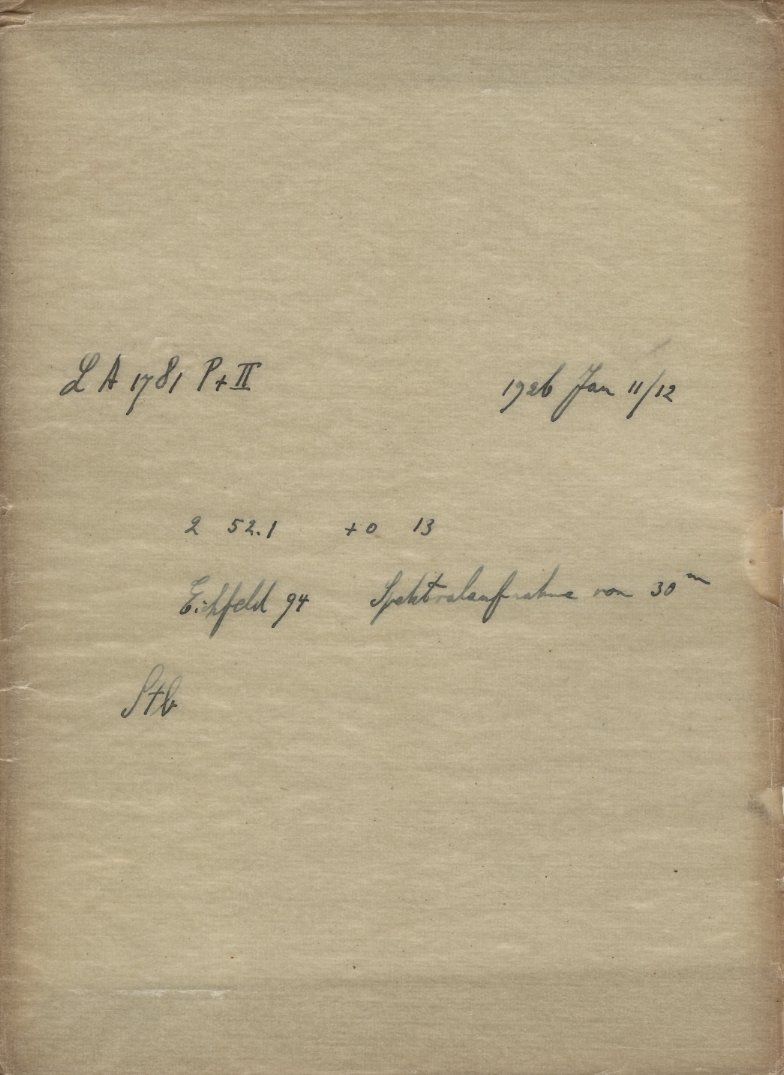 L A 1781 P + II 1926 Jan 11/12
2 52.1 +0 13
Eichfeld 94 Spektralaufnahme von 30ᵐ
Stb